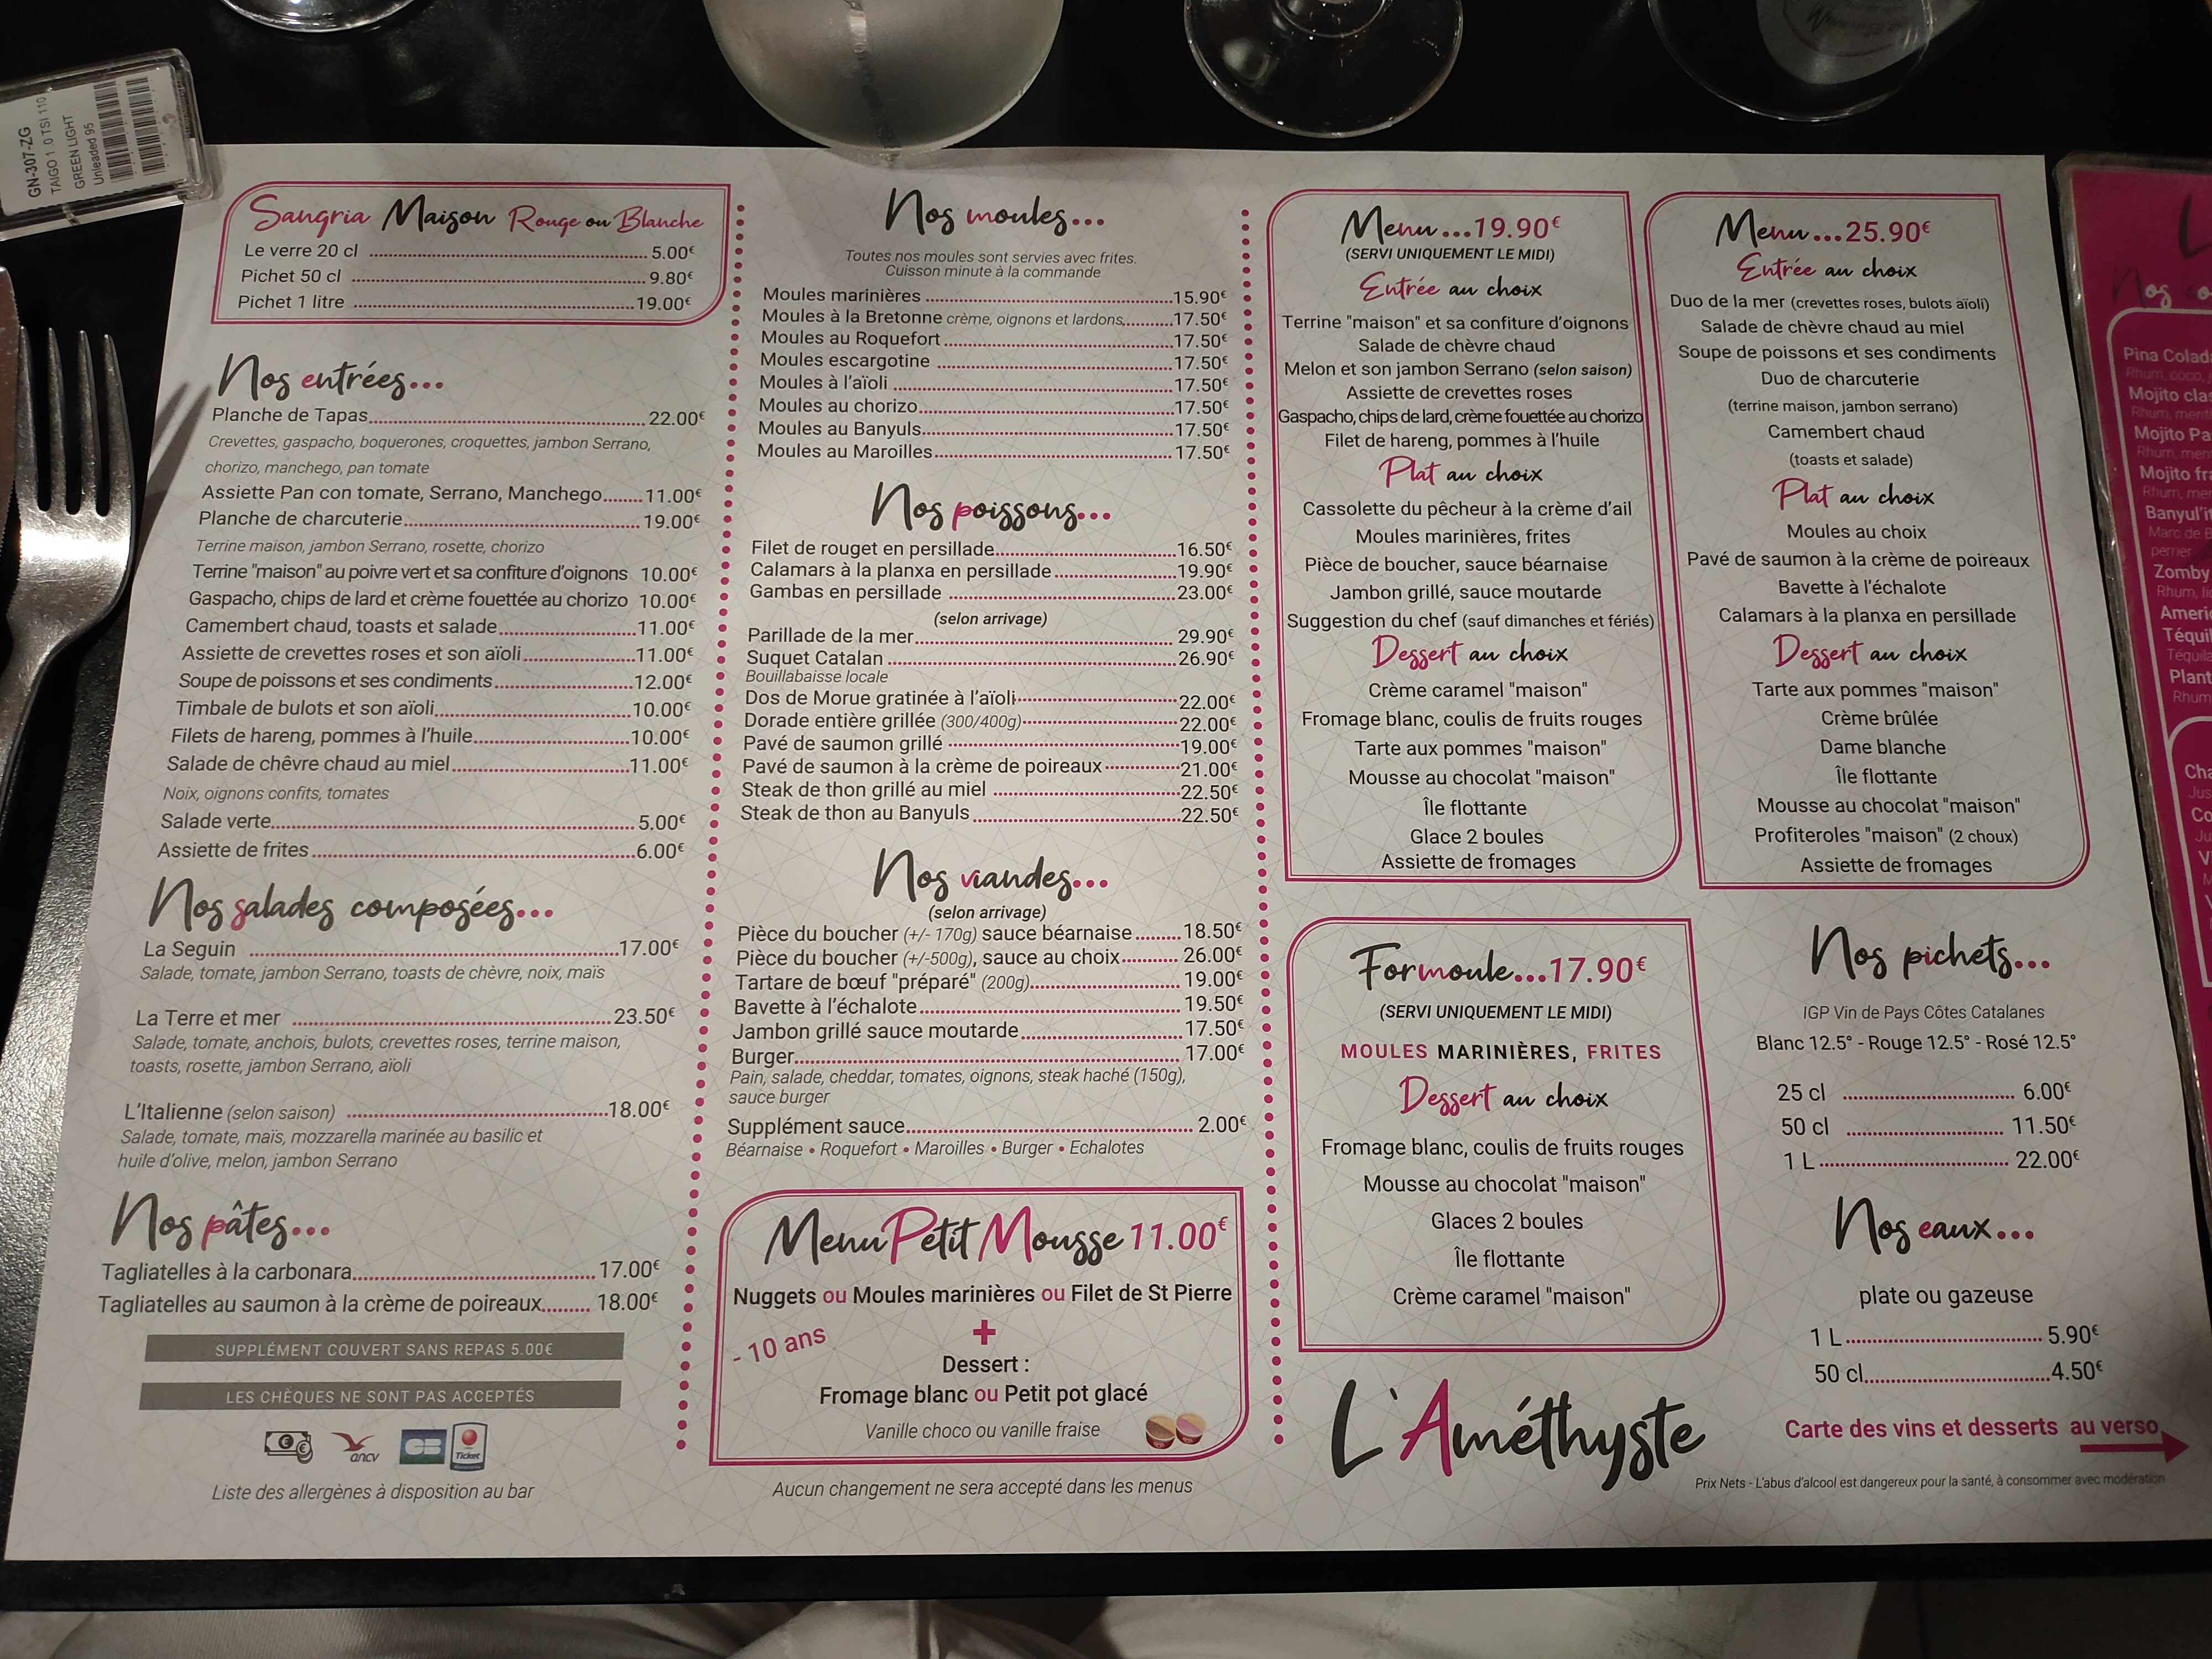 GN-307-ZG
TAIGO 1.0 TSI 110
GREEN LIGHT
Unleaded 95
Sangria Maison Rouge ou Blanche
Le verre 20 cl 5.00€
Pichet 50 cl 9.80€
Pichet 1 litre 19.00€
Nos entrées...
Planche de Tapas 22.00€
Crevettes, gaspacho, boquerones, croquettes, jambon Serrano,
chorizo, manchego, pan tomate
Assiette Pan con tomate, Serrano, Manchego 11.00€
Planche de charcuterie 19.00€
Terrine maison, jambon Serrano, rosette, chorizo
Terrine "maison" au poivre vert et sa confiture d'oignons 10.00€
Gaspacho, chips de lard et crème fouettée au chorizo 10.00€
Camembert chaud, toasts et salade 11.00€
Assiette de crevettes roses et son aïoli 11.00€
Soupe de poissons et ses condiments 12.00€
Timbale de bulots et son aïoli 10.00€
Filets de hareng, pommes à l'huile 10.00€
Salade de chêvre chaud au miel 11.00€
Noix, oignons confits, tomates
Salade verte 5.00€
Assiette de frites 6.00€
Nos salades composées...
La Seguin 17.00€
Salade, tomate, jambon Serrano, toasts de chèvre, noix, maïs
La Terre et mer 23.50€
Salade, tomate, anchois, bulots, crevettes roses, terrine maison,
toasts, rosette, jambon Serrano, aïoli
L'Italienne (selon saison) 18.00€
Salade, tomate, maïs, mozzarella marinée au basilic et
huile d'olive, melon, jambon Serrano
Nos pâtes...
Tagliatelles à la carbonara 17.00€
Tagliatelles au saumon à la crème de poireaux 18.00€
SUPPLÉMENT COUVERT SANS REPAS 5.00€
LES CHÈQUES NE SONT PAS ACCEPTÉS
ancv
CB
Ticket
Liste des allergènes à disposition au bar
Nos moules...
Toutes nos moules sont servies avec frites.
Cuisson minute à la commande
Moules marinières 15.90€
Moules à la Bretonne crème, oignons et lardons 17.50€
Moules au Roquefort 17.50€
Moules escargotine 17.50€
Moules à l'aïoli 17.50€
Moules au chorizo 17.50€
Moules au Banyuls 17.50€
Moules au Maroilles 17.50€
Nos poissons...
Filet de rouget en persillade 16.50€
Calamars à la planxa en persillade 19.90€
Gambas en persillade 23.00€
(selon arrivage)
Parillade de la mer 29.90€
Suquet Catalan 26.90€
Bouillabaisse locale
Dos de Morue gratinée à l'aïoli 22.00€
Dorade entière grillée (300/400g) 22.00€
Pavé de saumon grillé 19.00€
Pavé de saumon à la crème de poireaux 21.00€
Steak de thon grillé au miel 22.50€
Steak de thon au Banyuls 22.50€
Nos viandes...
(selon arrivage)
Pièce du boucher (+/- 170g) sauce béarnaise 18.50€
Pièce du boucher (+/-500g), sauce au choix 26.00€
Tartare de bœuf "préparé" (200g) 19.00€
Bavette à l'échalote 19.50€
Jambon grillé sauce moutarde 17.50€
Burger 17.00€
Pain, salade, cheddar, tomates, oignons, steak haché (150g),
sauce burger
Supplément sauce 2.00€
Béarnaise • Roquefort • Maroilles • Burger • Echalotes
Menu Petit Mousse 11.00€
Nuggets ou Moules marinières ou Filet de St Pierre
+
- 10 ans
Dessert :
Fromage blanc ou Petit pot glacé
Vanille choco ou vanille fraise
Aucun changement ne sera accepté dans les menus
Menu...19.90€
(SERVI UNIQUEMENT LE MIDI)
Entrée au choix
Terrine "maison" et sa confiture d'oignons
Salade de chèvre chaud
Melon et son jambon Serrano (selon saison)
Assiette de crevettes roses
Gaspacho, chips de lard, crème fouettée au chorizo
Filet de hareng, pommes à l'huile
Plat au choix
Cassolette du pêcheur à la crème d'ail
Moules marinières, frites
Pièce de boucher, sauce béarnaise
Jambon grillé, sauce moutarde
Suggestion du chef (sauf dimanches et fériés)
Dessert au choix
Crème caramel "maison"
Fromage blanc, coulis de fruits rouges
Tarte aux pommes "maison"
Mousse au chocolat "maison"
Île flottante
Glace 2 boules
Assiette de fromages
Menu...25.90€
Entrée au choix
Duo de la mer (crevettes roses, bulots aïoli)
Salade de chèvre chaud au miel
Soupe de poissons et ses condiments
Duo de charcuterie
(terrine maison, jambon serrano)
Camembert chaud
(toasts et salade)
Plat au choix
Moules au choix
Pavé de saumon à la crème de poireaux
Bavette à l'échalote
Calamars à la planxa en persillade
Dessert au choix
Tarte aux pommes "maison"
Crème brûlée
Dame blanche
Île flottante
Mousse au chocolat "maison"
Profiteroles "maison" (2 choux)
Assiette de fromages
Formoule...17.90€
(SERVI UNIQUEMENT LE MIDI)
MOULES MARINIÈRES, FRITES
Dessert au choix
Fromage blanc, coulis de fruits rouges
Mousse au chocolat "maison"
Glaces 2 boules
Île flottante
Crème caramel "maison"
L'Améthyste
Nos pichets...
IGP Vin de Pays Côtes Catalanes
Blanc 12.5° - Rouge 12.5° - Rosé 12.5°
25 cl 6.00€
50 cl 11.50€
1 L 22.00€
Nos eaux...
plate ou gazeuse
1 L 5.90€
50 cl 4.50€
Carte des vins et desserts au verso
Prix Nets - L'abus d'alcool est dangereux pour la santé, à consommer avec modération
Nos
Pina Colad
Rhum, coco,
Mojito clas
Rhum, ment
Mojito Pa
Rhum, men
Mojito fr
Rhum, me
Banyul'it
Marc de B
perrier
Zomby
Rhum, li
Ameri
Téquil
Téquila
Plant
Rhum